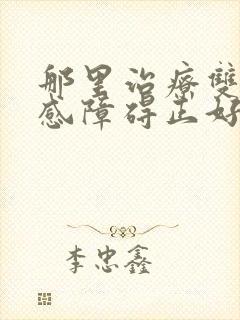 那里治療雙
感障碍正好
李忠鑫